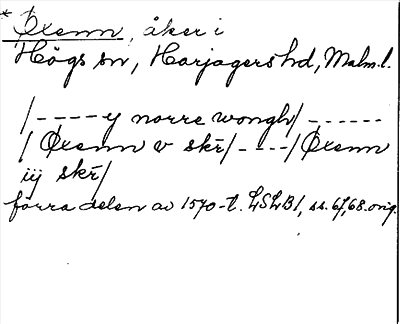 * Öxenn, åker i
Högs sn, Harjagers hd, Malm. l.
/----y norre wongh/------
/ Öxenn v skr̄/----/Öxenn
iij skr̄/
förra delen av 1570-t. LSLB1, ss. 67,68. orig.